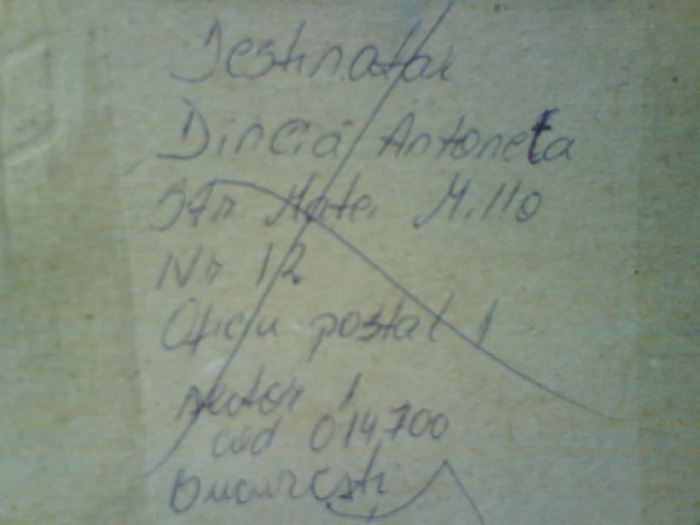 Destinatar
Dinciă Antoneta
Str Matei Millo
Nr 12
Oficiu postal 1
sector 1
cod 014700
București